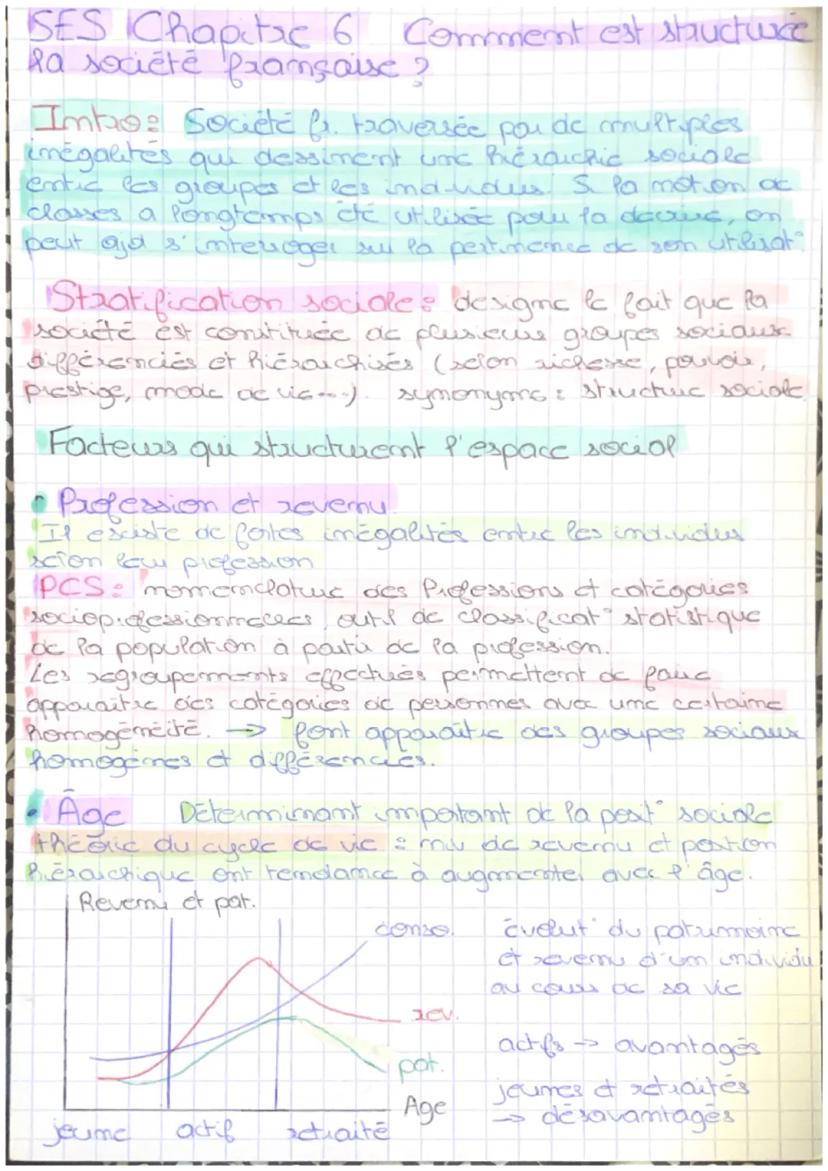 SES Chapitre 6 Comment est structurée
la société française ?
Intro : Société fr. traversée par de multiples
inégalités qui dessinent une hiérarchie sociale
entre les groupes et les individus. Si la notion de
classes a longtemps été utilisée pour la décrire, on
peut ajd s'interroger sur la pertinence de son utilisat°
Stratification sociale : designe le fait que la
société est constituée de plusieurs groupes sociaux
différenciés et hiérarchisés (selon richesse, pouvoir,
prestige, mode de vie...). synonyme : structure sociale
Facteurs qui structurent l'espace social
• Profession et revenu
Il existe de fortes inégalités entre les individus
selon leur profession
PCS : nomenclature des Professions et catégories
socioprofessionnelles, outil de classificat° statistique
de la population à partir de la profession.
Les regroupements effectués permettent de faire
apparaitre des catégories de personnes avec une certaine
homogénéité. → font apparaître des groupes sociaux
homogènes et différenciés.
• Âge Déterminant important de la posit° sociale
théorie du cycle de vie : niv de revenu et position
hiérarchique ont tendance à augmenter avec l'âge.
Revenu et pat.
conso.
rev.
pat.
Age
jeune actif retraité
évolut° du patrimoine
et revenu d'un individu
au cours de sa vie
actifs → avantagés
jeunes et retraités
→ désavantagés